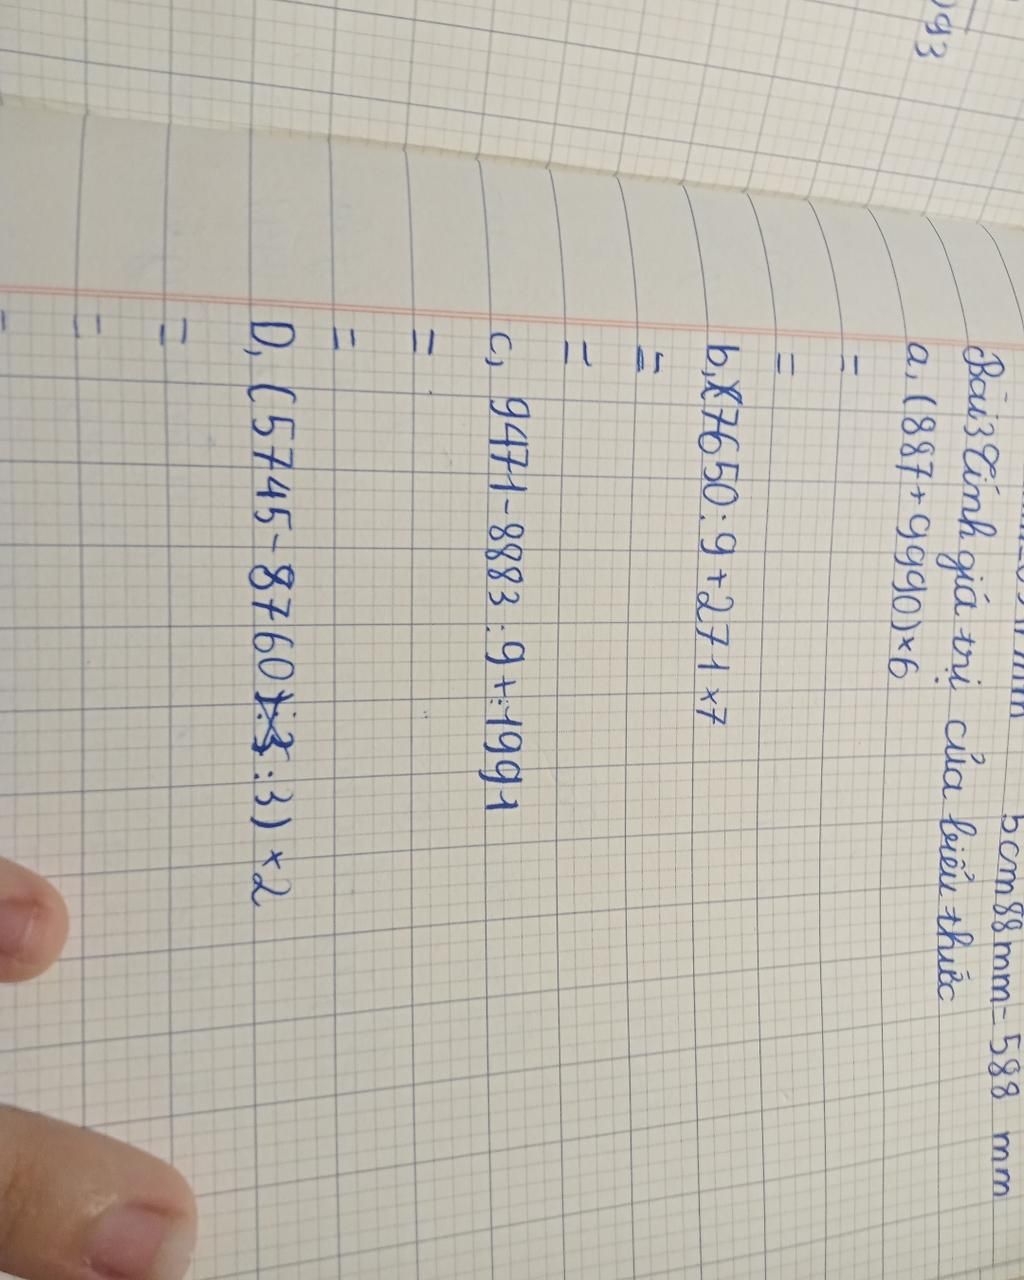 5cm88mm=588 mm
Bài3 Tính giá trị của biểu thức
a, (887+9990)×6
=
=
b, 7650:9+271×7
=
=
c, 9471-8883:9+1991
=
=
D, (5745-8760:3)×2
=
=
=